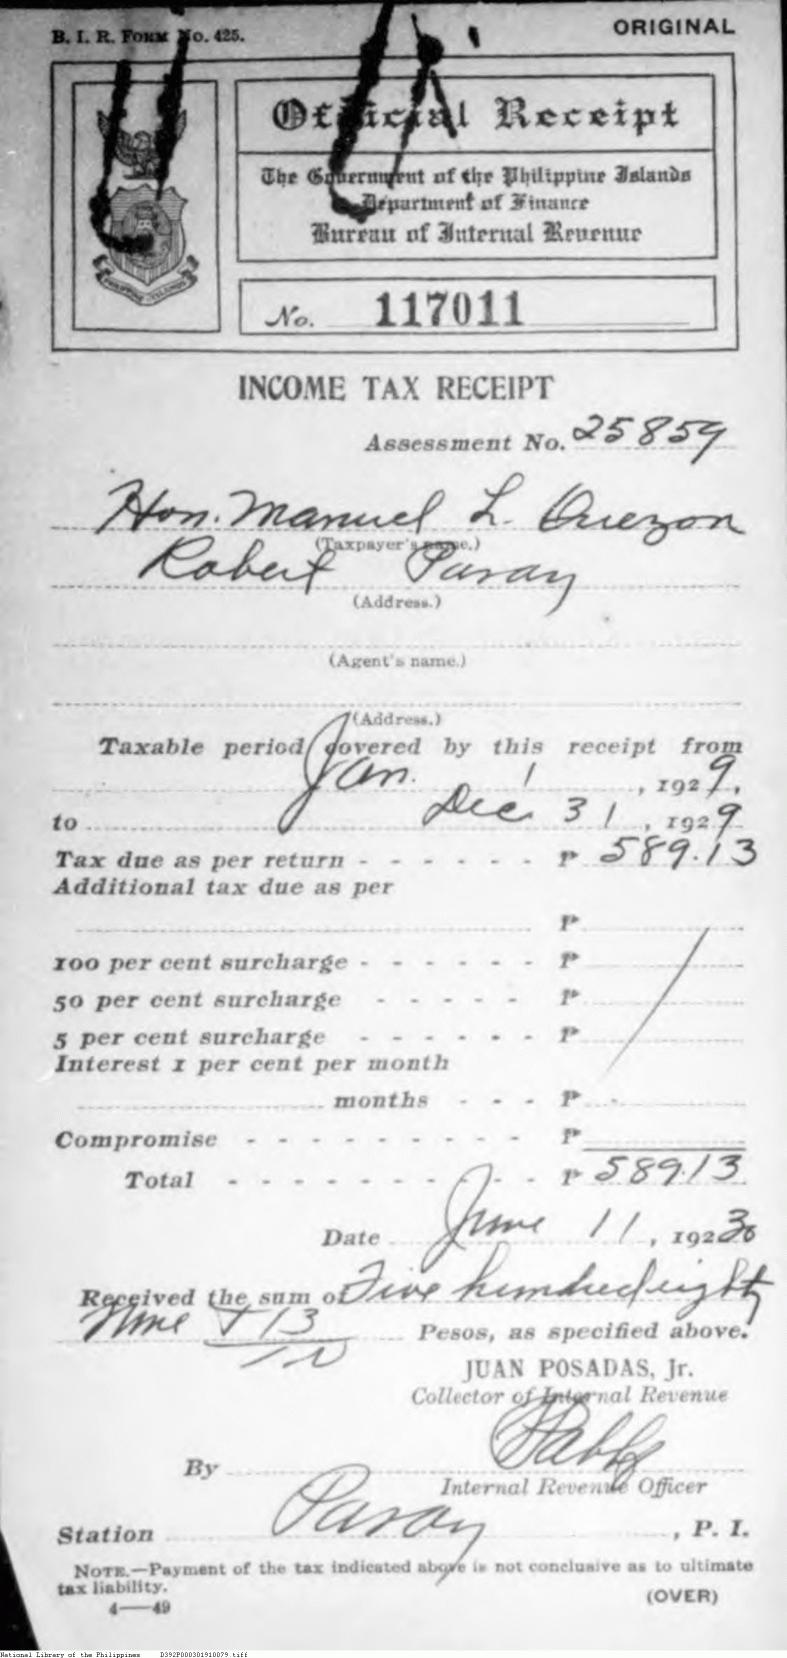 B. I. R. Form No. 425.
ORIGINAL
Official Receipt
The Government of the Philippine Islands
Department of Finance
Bureau of Internal Revenue
PHILIPPINE ISLANDS
No. 117011
INCOME TAX RECEIPT
Assessment No. 25859
Hon. Manuel L. Quezon
(Taxpayer's name.)
Robert Pasay
(Address.)
(Agent's name.)
(Address.)
Taxable period covered by this receipt from
Jan. 1, 1929,
to Dec 31, 1929
Tax due as per return - - - - - - ₱ 589.13
Additional tax due as per
₱
100 per cent surcharge - - - - - - ₱
50 per cent surcharge - - - - - ₱
5 per cent surcharge - - - - - - ₱
Interest 1 per cent per month
months - - - ₱
Compromise - - - - - - - - - - ₱
Total - - - - - - - - - - ₱ 589.13
Date June 11, 19230
Received the sum of Five hundred eighty
nine & 13/10 Pesos, as specified above.
JUAN POSADAS, Jr.
Collector of Internal Revenue
By
Internal Revenue Officer
Station Pasay, P. I.
NOTE.—Payment of the tax indicated above is not conclusive as to ultimate
tax liability.
(OVER)
4——49
National Library of the Philippines D392P000301910079.tiff